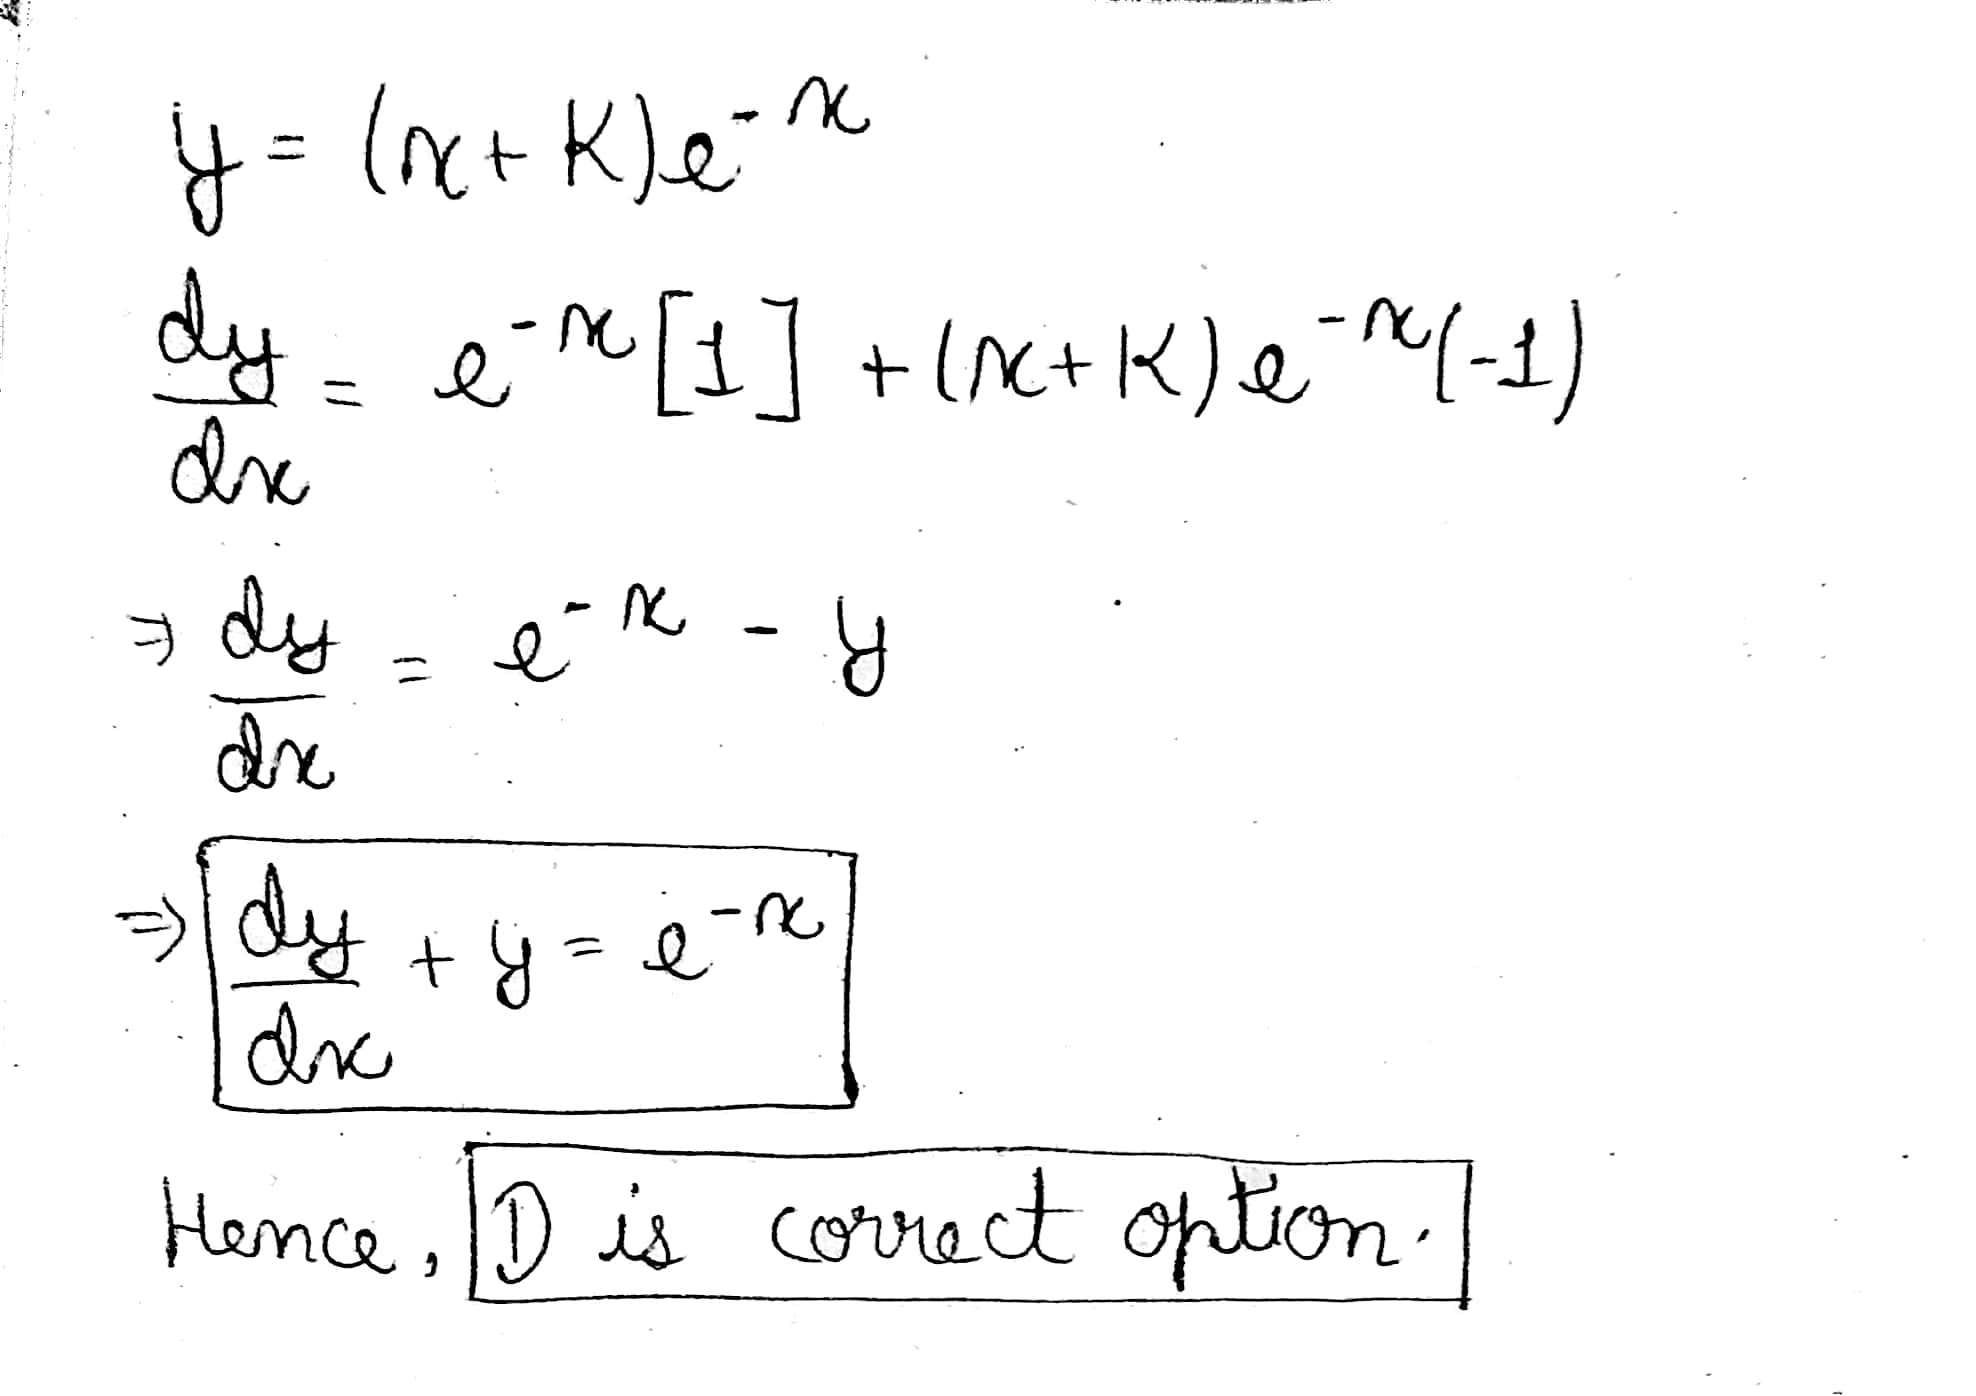 y = (x + K)e^{-x}
dy/dx = e^{-x}[1] + (x + K)e^{-x}(-1)
⇒ dy/dx = e^{-x} - y
⇒ dy/dx + y = e^{-x}
Hence, D is correct option.